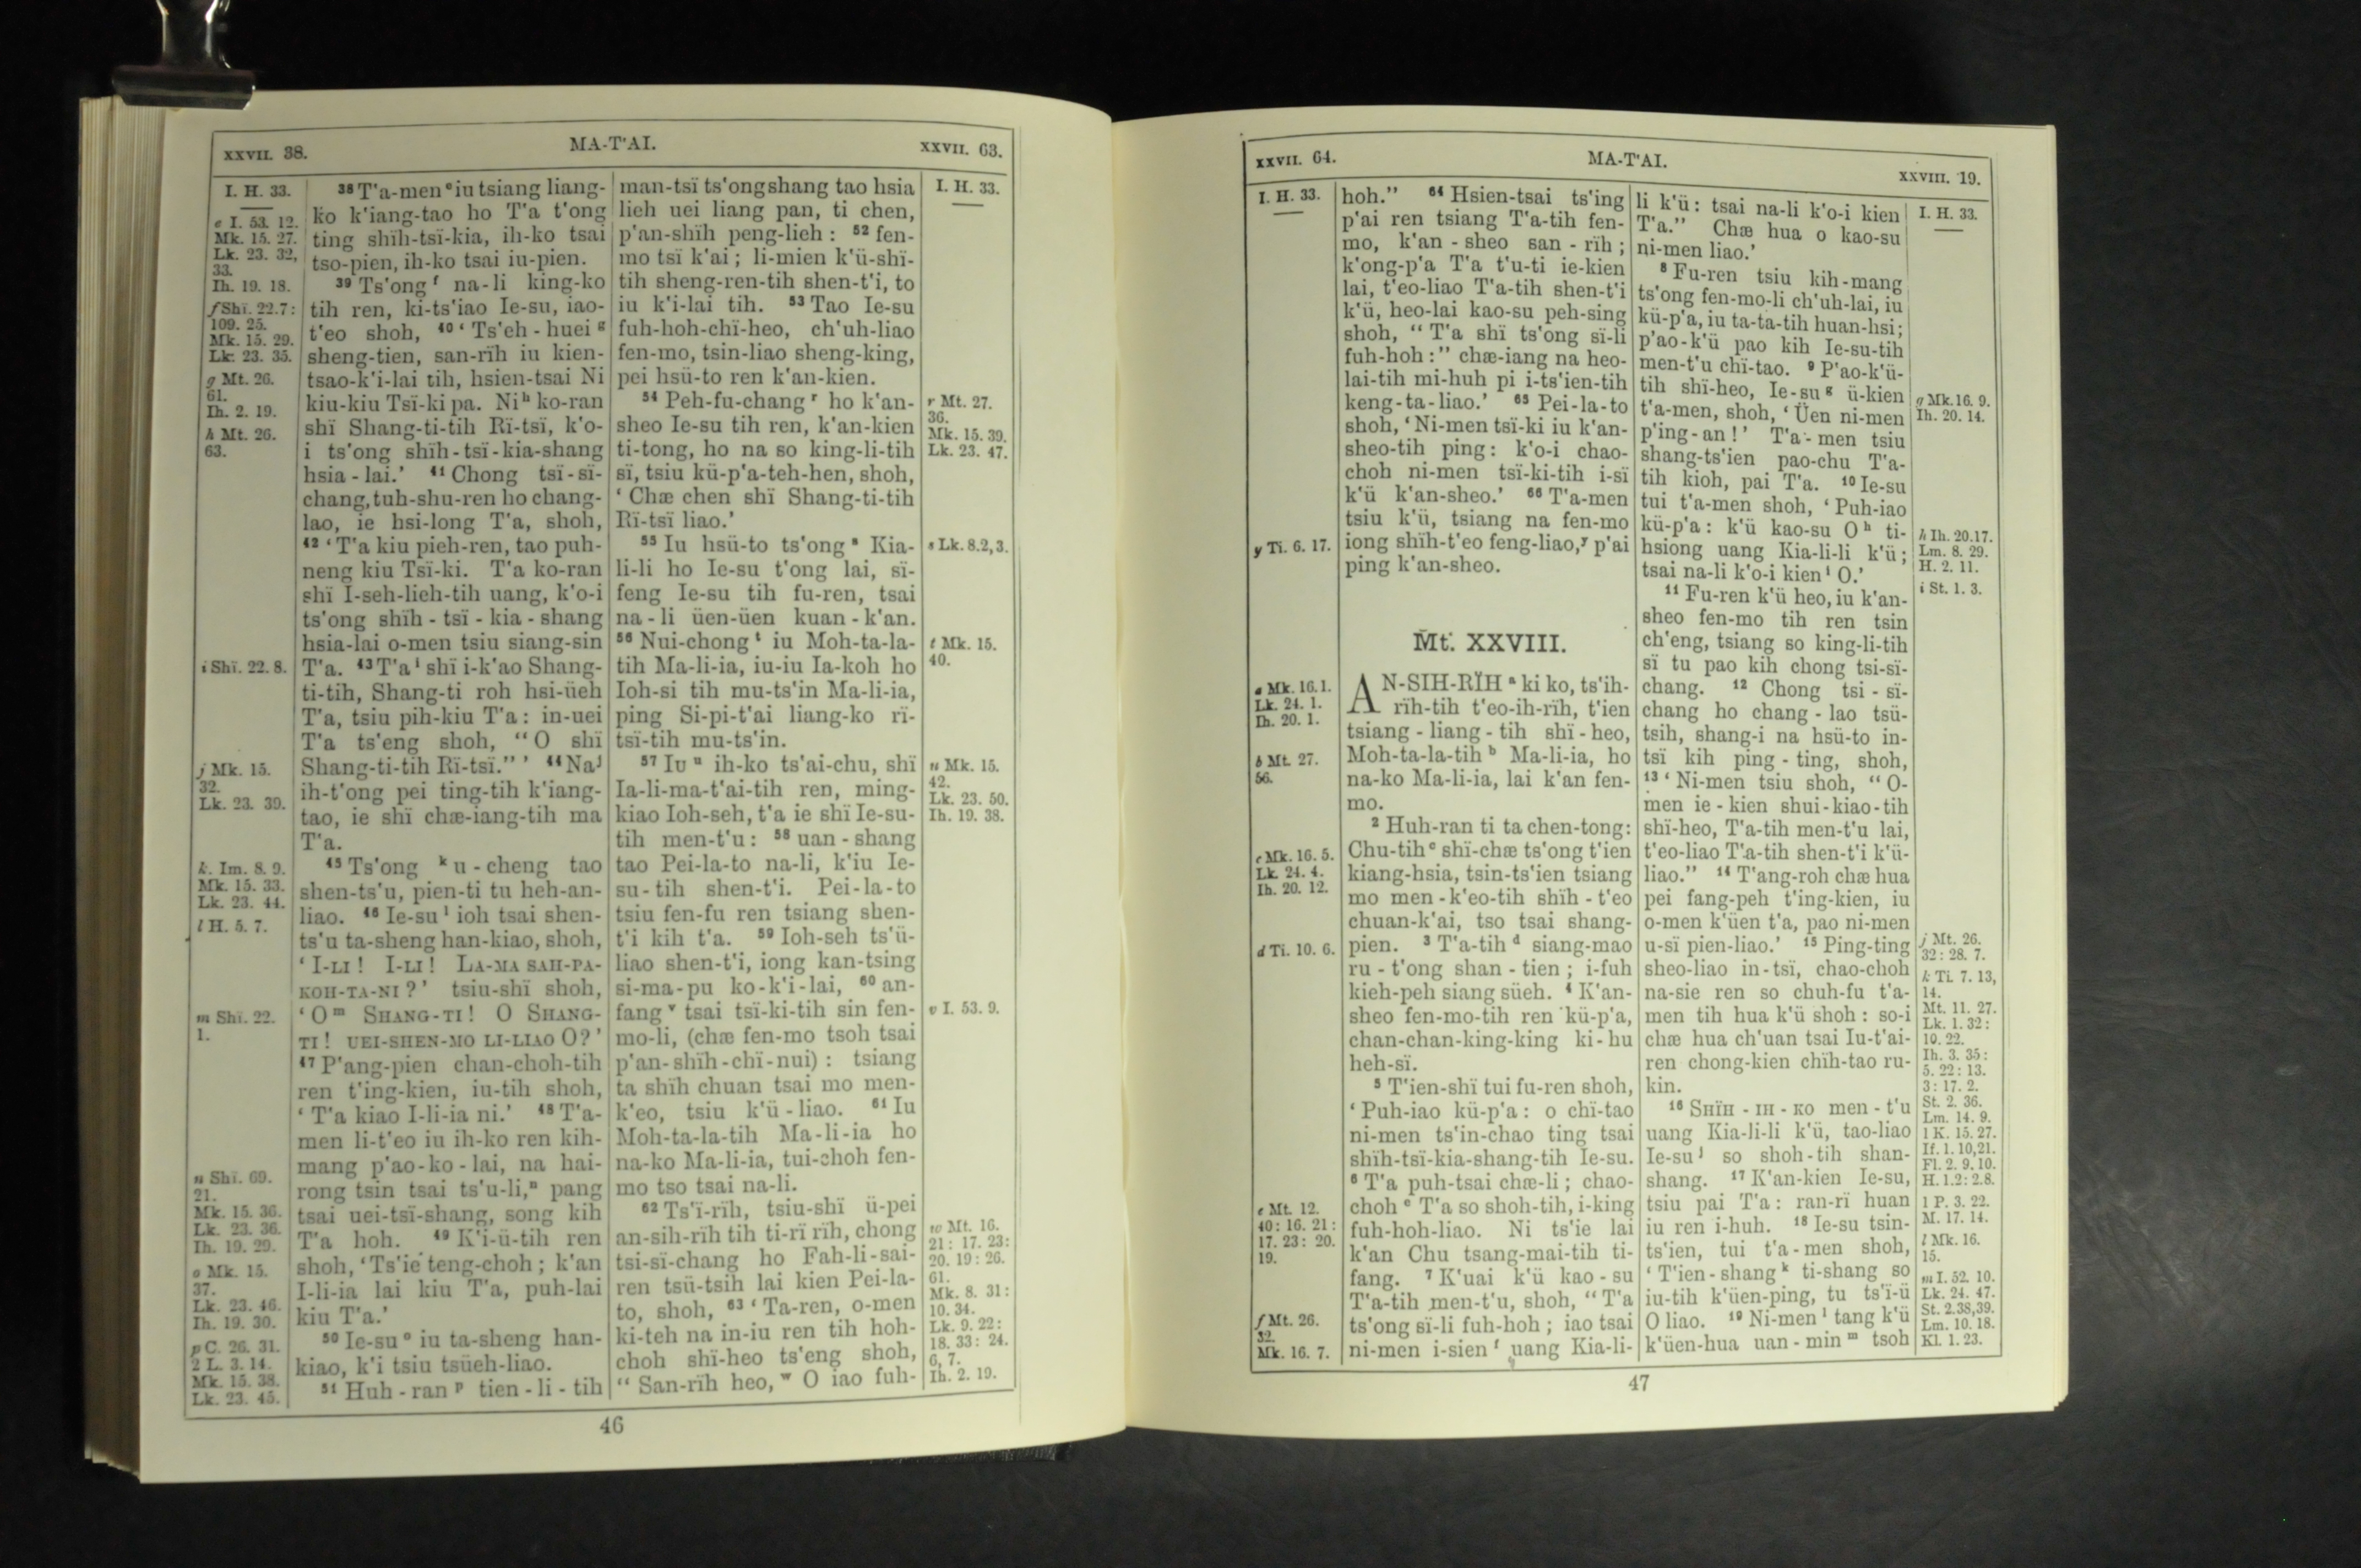 XXVII. 38.
MA-T'AI.
XXVII. 63.
I. H. 33.
e I. 53. 12.
Mk. 15. 27.
Lk. 23. 32,
33.
Ih. 19. 18.
f Shï. 22.7:
109. 25.
Mk. 15. 29.
Lk. 23. 35.
g Mt. 26.
61.
Ih. 2. 19.
h Mt. 26.
63.
i Shï. 22. 8.
j Mk. 15.
32.
Lk. 23. 39.
k Im. 8. 9.
Mk. 15. 33.
Lk. 23. 44.
l H. 5. 7.
m Shï. 22.
1.
n Shï. 69.
21.
Mk. 15. 36.
Lk. 23. 36.
Ih. 19. 29.
o Mk. 15.
37.
Lk. 23. 46.
Ih. 19. 30.
p C. 26. 31.
2 L. 3. 14.
Mk. 15. 38.
Lk. 23. 45.
38 T'a-men e iu tsiang liang-
ko k'iang-tao ho T'a t'ong
ting shïh-tsï-kia, ih-ko tsai
tso-pien, ih-ko tsai iu-pien.
39 Ts'ong f na-li king-ko
tih ren, ki-ts'iao Ie-su, iao-
t'eo shoh, 40 ‘ Ts'eh-huei g
sheng-tien, san-rïh iu kien-
tsao-k'i-lai tih, hsien-tsai Ni
kiu-kiu Tsï-ki pa. Ni h ko-ran
shï Shang-ti-tih Rï-tsï, k'o-
i ts'ong shïh-tsï-kia-shang
hsia-lai.’ 41 Chong tsï-sï-
chang, tuh-shu-ren ho chang-
lao, ie hsi-long T'a, shoh,
42 ‘ T'a kiu pieh-ren, tao puh-
neng kiu Tsï-ki. T'a ko-ran
shï I-seh-lieh-tih uang, k'o-i
ts'ong shïh-tsï-kia-shang
hsia-lai o-men tsiu siang-sin
T'a. 43 T'a i shï i-k'ao Shang-
ti-tih, Shang-ti roh hsi-üeh
T'a, tsiu pih-kiu T'a: in-uei
T'a ts'eng shoh, “O shï
Shang-ti-tih Rï-tsï.” ’ 44 Na j
ih-t'ong pei ting-tih k'iang-
tao, ie shï chæ-iang-tih ma
T'a.
45 Ts'ong k u-cheng tao
shen-ts'u, pien-ti tu heh-an-
liao. 46 Ie-su l ioh tsai shen-
ts'u ta-sheng han-kiao, shoh,
‘ I-LI ! I-LI ! LA-MA SAH-PA-
KOH-TA-NI ?’ tsiu-shï shoh,
‘ O m SHANG-TI ! O SHANG-
TI ! UEI-SHEN-MO LI-LIAO O?’
47 P'ang-pien chan-choh-tih
ren t'ing-kien, iu-tih shoh,
‘ T'a kiao I-li-ia ni.’ 48 T'a-
men li-t'eo iu ih-ko ren kih-
mang p'ao-ko-lai, na hai-
rong tsin tsai ts'u-li, n pang
tsai uei-tsï-shang, song kih
T'a hoh. 49 K'i-ü-tih ren
shoh, ‘Ts'ie teng-choh ; k'an
I-li-ia lai kiu T'a, puh-lai
kiu T'a.’
50 Ie-su o iu ta-sheng han-
kiao, k'i tsiu tsüeh-liao.
51 Huh-ran p tien-li-tih
man-tsï ts'ong shang tao hsia
lieh uei liang pan, ti chen,
p'an-shïh peng-lieh : 52 fen-
mo tsï k'ai ; li-mien k'ü-shï-
tih sheng-ren-tih shen-t'i, to
iu k'i-lai tih. 53 Tao Ie-su
fuh-hoh-chï-heo, ch'uh-liao
fen-mo, tsin-liao sheng-king,
pei hsü-to ren k'an-kien.
54 Peh-fu-chang r ho k'an-
sheo Ie-su tih ren, k'an-kien
ti-tong, ho na so king-li-tih
sï, tsiu kü-p'a-teh-hen, shoh,
‘ Chæ chen shï Shang-ti-tih
Rï-tsï liao.’
55 Iu hsü-to ts'ong s Kia-
li-li ho Ie-su t'ong lai, sï-
feng Ie-su tih fu-ren, tsai
na-li üen-üen kuan-k'an.
56 Nui-chong t iu Moh-ta-la-
tih Ma-li-ia, iu-iu Ia-koh ho
Ioh-si tih mu-ts'in Ma-li-ia,
ping Si-pi-t'ai liang-ko rï-
tsï-tih mu-ts'in.
57 Iu u ih-ko ts'ai-chu, shï
Ia-li-ma-t'ai-tih ren, ming-
kiao Ioh-seh, t'a ie shï Ie-su-
tih men-t'u : 58 uan-shang
tao Pei-la-to na-li, k'iu Ie-
su-tih shen-t'i. Pei-la-to
tsiu fen-fu ren tsiang shen-
t'i kih t'a. 59 Ioh-seh ts'ü-
liao shen-t'i, iong kan-tsing
si-ma-pu ko-k'i-lai, 60 an-
fang v tsai tsï-ki-tih sin fen-
mo-li, (chæ fen-mo tsoh tsai
p'an-shïh-chï-nui) : tsiang
ta shïh chuan tsai mo men-
k'eo, tsiu k'ü-liao. 61 Iu
Moh-ta-la-tih Ma-li-ia ho
na-ko Ma-li-ia, tui-choh fen-
mo tso tsai na-li.
62 Ts'ï-rïh, tsiu-shï ü-pei
an-sih-rïh tih ti-rï rïh, chong
tsi-sï-chang ho Fah-li-sai-
ren tsü-tsih lai kien Pei-la-
to, shoh, 63 ‘ Ta-ren, o-men
ki-teh na in-iu ren tih hoh-
choh shï-heo ts'eng shoh,
“ San-rïh heo, w O iao fuh-
I. H. 33.
r Mt. 27.
36.
Mk. 15. 39.
Lk. 23. 47.
s Lk. 8.2,3.
t Mk. 15.
40.
u Mk. 15.
42.
Lk. 23. 50.
Ih. 19. 38.
v I. 53. 9.
w Mt. 16.
21: 17. 23:
20. 19: 26.
61.
Mk. 8. 31:
10. 34.
Lk. 9. 22:
18. 33: 24.
6, 7.
Ih. 2. 19.
46
XXVII. 64.
MA-T'AI.
XXVIII. 19.
I. H. 33.
y Ti. 6. 17.
a Mk. 16.1.
Lk. 24. 1.
Ih. 20. 1.
b Mt. 27.
56.
c Mk. 16. 5.
Lk. 24. 4.
Ih. 20. 12.
d Ti. 10. 6.
e Mt. 12.
40: 16. 21:
17. 23: 20.
19.
f Mt. 26.
32.
Mk. 16. 7.
hoh.” 64 Hsien-tsai ts'ing
p'ai ren tsiang T'a-tih fen-
mo, k'an-sheo san-rïh ;
k'ong-p'a T'a t'u-ti ie-kien
lai, t'eo-liao T'a-tih shen-t'i
k'ü, heo-lai kao-su peh-sing
shoh, “ T'a shï ts'ong sï-li
fuh-hoh :” chæ-iang na heo-
lai-tih mi-huh pi i-ts'ien-tih
keng-ta-liao.’ 65 Pei-la-to
shoh, ‘Ni-men tsï-ki iu k'an-
sheo-tih ping: k'o-i chao-
choh ni-men tsï-ki-tih i-sï
k'ü k'an-sheo.’ 66 T'a-men
tsiu k'ü, tsiang na fen-mo
iong shïh-t'eo feng-liao, y p'ai
ping k'an-sheo.
Mt. XXVIII.
AN-SIH-RÏH a ki ko, ts'ih-
rïh-tih t'eo-ih-rïh, t'ien
tsiang-liang-tih shï-heo,
Moh-ta-la-tih b Ma-li-ia, ho
na-ko Ma-li-ia, lai k'an fen-
mo.
2 Huh-ran ti ta chen-tong:
Chu-tih c shï-chæ ts'ong t'ien
kiang-hsia, tsin-ts'ien tsiang
mo men-k'eo-tih shïh-t'eo
chuan-k'ai, tso tsai shang-
pien. 3 T'a-tih d siang-mao
ru-t'ong shan-tien ; i-fuh
kieh-peh siang süeh. 4 K'an-
sheo fen-mo-tih ren kü-p'a,
chan-chan-king-king ki-hu
heh-sï.
5 T'ien-shï tui fu-ren shoh,
‘ Puh-iao kü-p'a : o chï-tao
ni-men ts'in-chao ting tsai
shïh-tsï-kia-shang-tih Ie-su.
6 T'a puh-tsai chæ-li ; chao-
choh e T'a so shoh-tih, i-king
fuh-hoh-liao. Ni ts'ie lai
k'an Chu tsang-mai-tih ti-
fang. 7 K'uai k'ü kao-su
T'a-tih men-t'u, shoh, “ T'a
ts'ong sï-li fuh-hoh ; iao tsai
ni-men i-sien f uang Kia-li-
li k'ü : tsai na-li k'o-i kien
T'a.” Chæ hua o kao-su
ni-men liao.’
8 Fu-ren tsiu kih-mang
ts'ong fen-mo-li ch'uh-lai, iu
kü-p'a, iu ta-ta-tih huan-hsi ;
p'ao-k'ü pao kih Ie-su-tih
men-t'u chï-tao. 9 P'ao-k'ü-
tih shï-heo, Ie-su g ü-kien
t'a-men, shoh, ‘ Üen ni-men
p'ing-an !’ T'a-men tsiu
shang-ts'ien pao-chu T'a-
tih kioh, pai T'a. 10 Ie-su
tui t'a-men shoh, ‘Puh-iao
kü-p'a : k'ü kao-su O h ti-
hsiong uang Kia-li-li k'ü ;
tsai na-li k'o-i kien i O.’
11 Fu-ren k'ü heo, iu k'an-
sheo fen-mo tih ren tsin
ch'eng, tsiang so king-li-tih
sï tu pao kih chong tsi-sï-
chang. 12 Chong tsi-sï-
chang ho chang-lao tsü-
tsih, shang-i na hsü-to in-
tsï kih ping-ting, shoh,
13 ‘ Ni-men tsiu shoh, “ O-
men ie-kien shui-kiao-tih
shï-heo, T'a-tih men-t'u lai,
t'eo-liao T'a-tih shen-t'i k'ü-
liao.” 14 T'ang-roh chæ hua
pei fang-peh t'ing-kien, iu
o-men k'üen t'a, pao ni-men
u-sï pien-liao.’ 15 Ping-ting
sheo-liao in-tsï, chao-choh
na-sie ren so chuh-fu t'a-
men tih hua k'ü shoh : so-i
chæ hua ch'uan tsai Iu-t'ai-
ren chong-kien chïh-tao ru-
kin.
16 SHÏH-IH-KO men-t'u
uang Kia-li-li k'ü, tao-liao
Ie-su j so shoh-tih shan-
shang. 17 K'an-kien Ie-su,
tsiu pai T'a : ran-rï huan
iu ren i-huh. 18 Ie-su tsin-
ts'ien, tui t'a-men shoh,
‘ T'ien-shang k ti-shang so
iu-tih k'üen-ping, tu ts'ï-ü
O liao. 19 Ni-men l tang k'ü
k'üen-hua uan-min m tsoh
I. H. 33.
g Mk.16. 9.
Ih. 20. 14.
h Ih. 20.17.
Lm. 8. 29.
H. 2. 11.
i St. 1. 3.
j Mt. 26.
32: 28. 7.
k Ti. 7. 13,
14.
Mt. 11. 27.
Lk. 1. 32:
10. 22.
Ih. 3. 35:
5. 22: 13.
3: 17. 2.
St. 2. 36.
Lm. 14. 9.
1 K. 15. 27.
If. 1. 10,21.
Fl. 2. 9. 10.
H. 1.2: 2.8.
1 P. 3. 22.
M. 17. 14.
l Mk. 16.
15.
m I. 52. 10.
Lk. 24. 47.
St. 2.38,39.
Lm. 10. 18.
Kl. 1. 23.
47